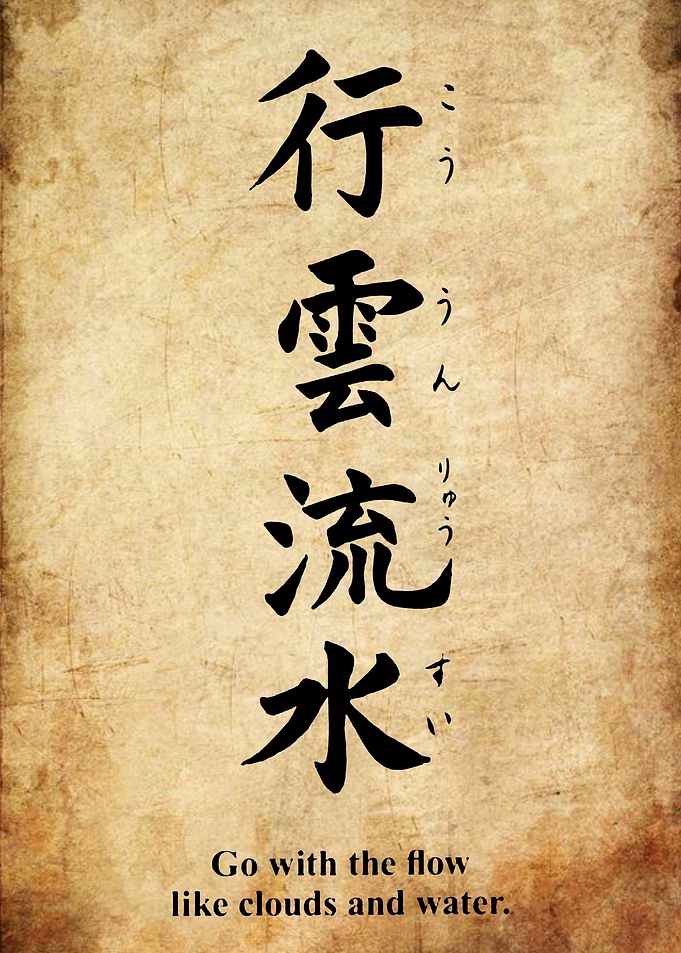 行雲流水
こううんりゅうすい
Go with the flow
like clouds and water.